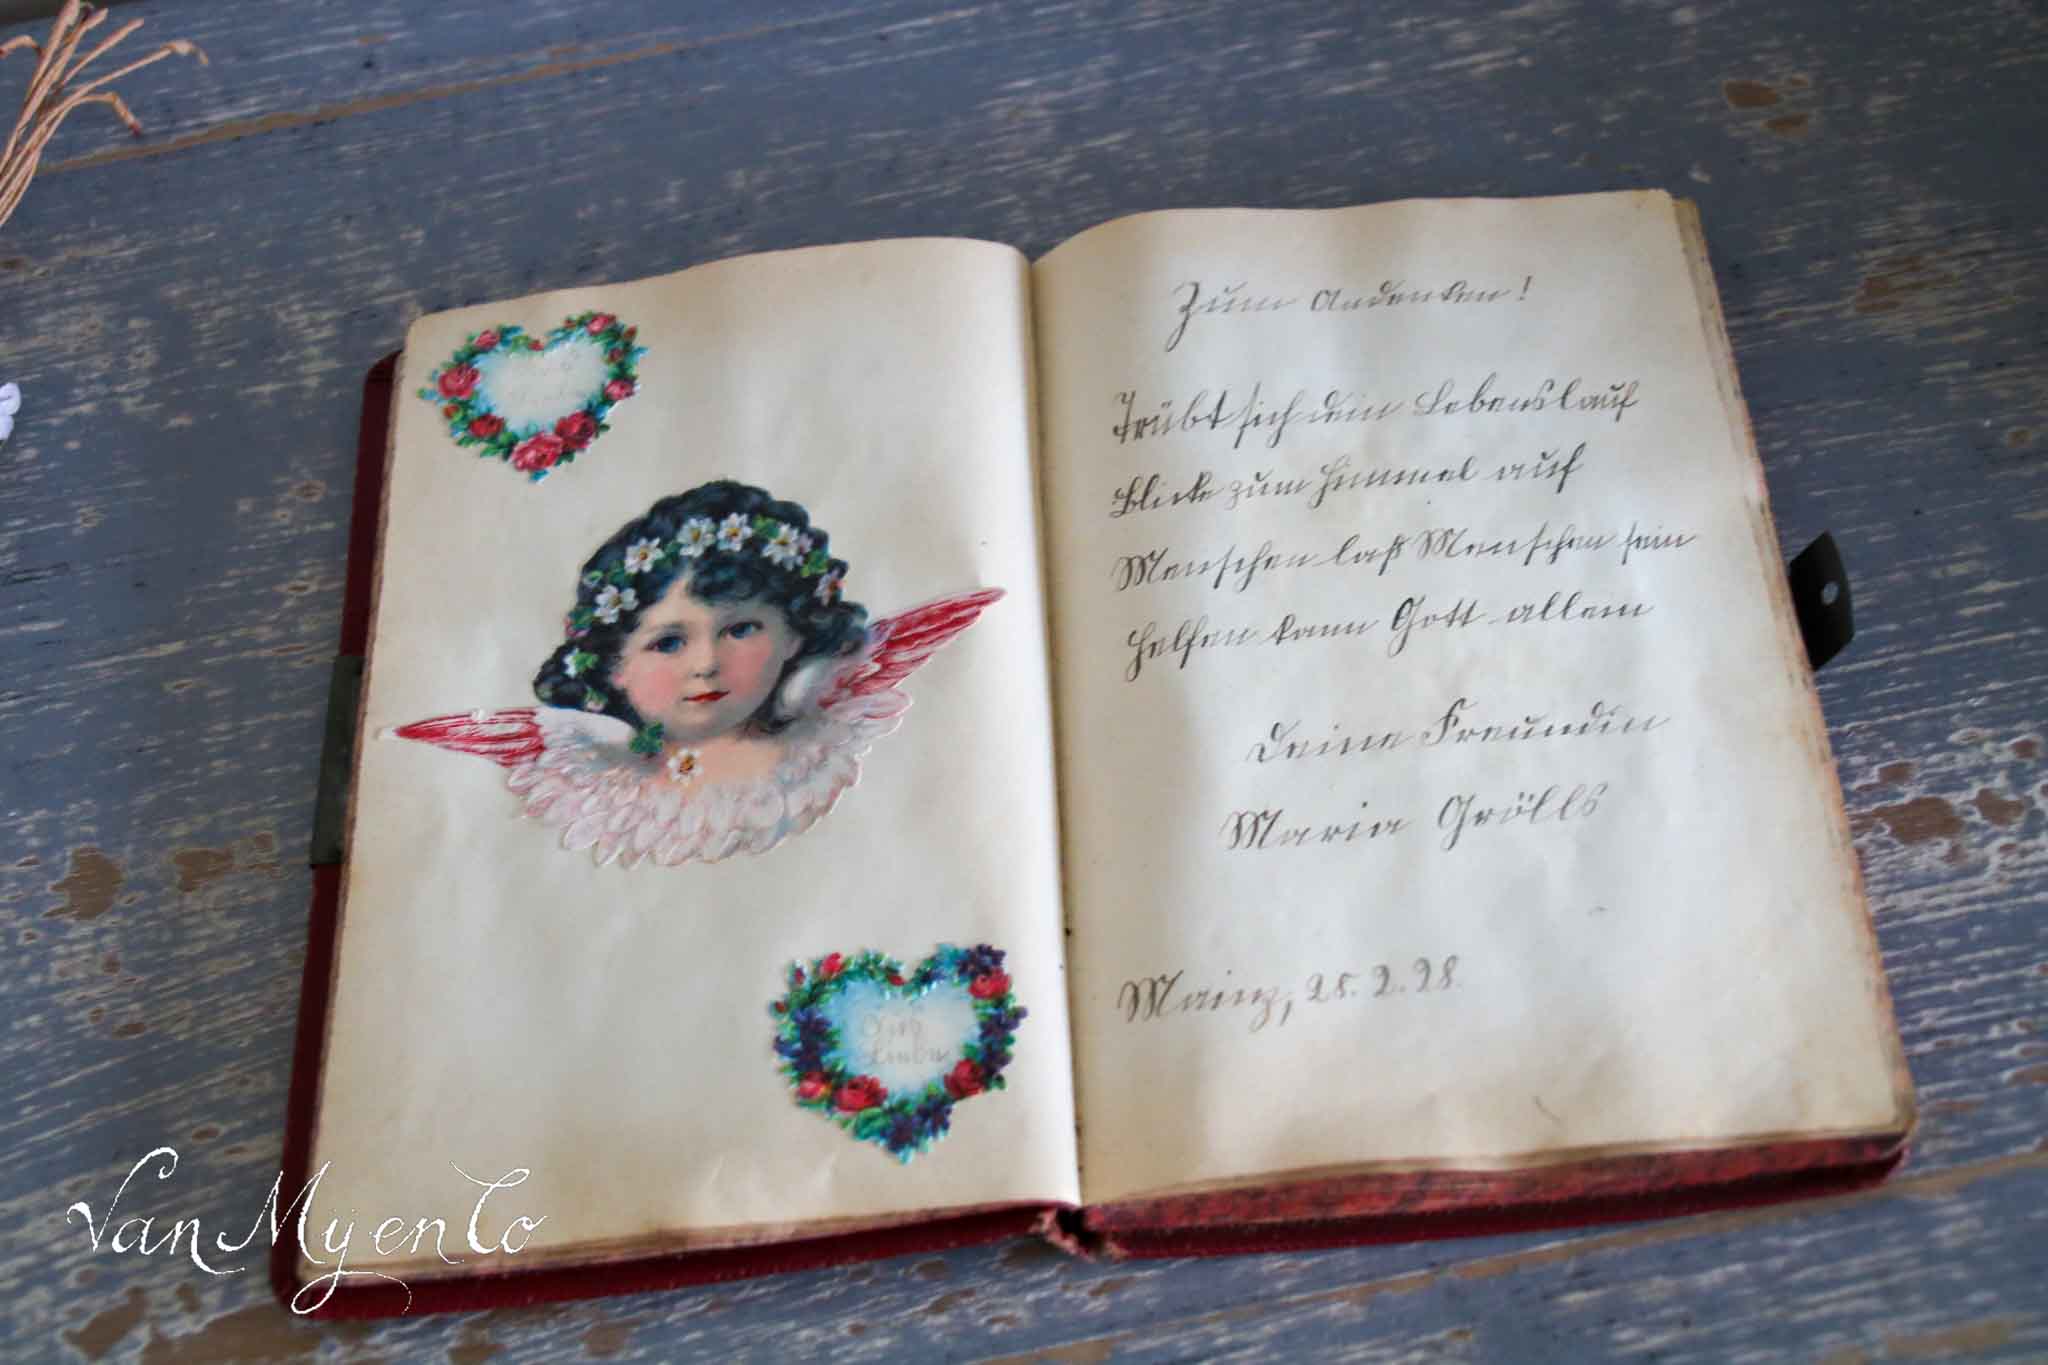 Zum Andenken!
Trübt sich dein Lebenslauf
Blicke zum Himmel auf
Menschen laß Menschen sein
Helfen kann Gott allein
Deine Freundin
Maria Grölls
Mainz, 25.2.28.
Liebe
VanMyenCo